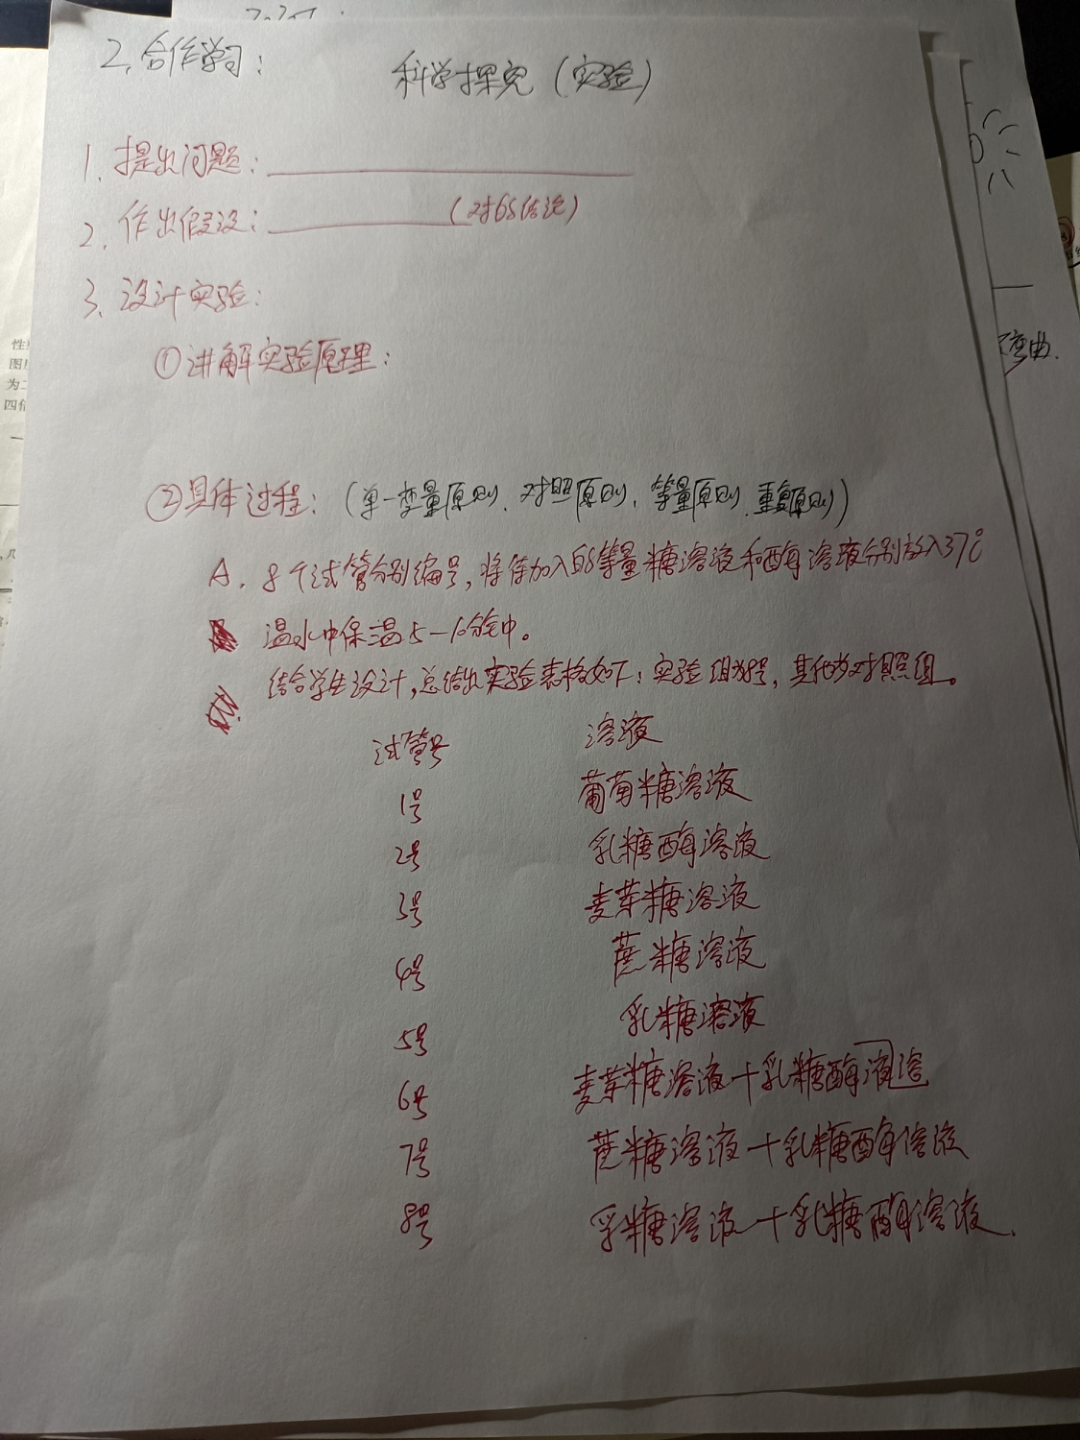 2、合作学习：
科学探究（实验）
1、提出问题：
2、作出假设：（对6S结论）
3、设计实验：
①讲解实验原理：
②具体过程：（单一变量原则、对照原则、等量原则、重复原则）
A、8个试管分别编号，将待加入的等量糖溶液和酶溶液分别放入37℃
温水中保温5—10分钟中。
结合学生设计，总结出实验表格如下：实验组为8号，其他为对照组。
试管号 溶液
1号 葡萄糖溶液
2号 乳糖酶溶液
3号 麦芽糖溶液
4号 蔗糖溶液
5号 乳糖溶液
6号 麦芽糖溶液+乳糖酶液溶
7号 蔗糖溶液+乳糖酶溶液
8号 乳糖溶液+乳糖酶溶液.
弯曲.
性
图
为二
四倍